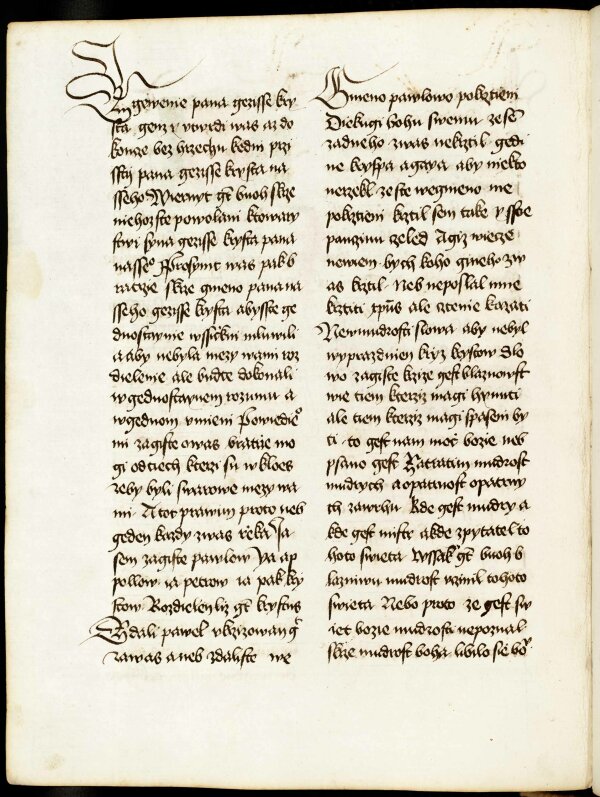 Zgewenie pana gezisse kry
sta genz y vtwrdi was az do
koncze bez hrzechu kedni przi
ssti pana gezisse krysta na
sseho Wiernyt gt buoh skrze
niehozste powolani ktowary
stwi syna gezisse krysta pana
nasseo Prosymt was pak b
ratrzie skrze gmeno pana na
sseho gezisse krysta abysste ge
dnostaynie wssickni mluwili
a aby nebyla mezy wami roz
dielenie ale budte dokonali
w gednostaynem rozumu a
w gednom vmieni Powiedieo
mi zagiste owas bratrzie mo
gi od tiech kterzi su w kloes
zeby byli swarowe mezy wa
mi A tot prawim proto neb
geden kazdy zwas rzeka Ja
sem zagiste pawlow Ya ap
pollow ia petrow ia pak kry
stow Rozdielen liz gt krystus
Zdali pawel vkrizowan g
zawas a neb zdaliste we
Gmeno pawlowo pokrztieni
Diekugi bohu swemu ze sē
zadneho zwas nekrztil gedi
ne kryspa a gaya aby niekto
nerzekl ze ste wegmeno me
pokrztieni krztil sem take y ssoe
panzinu czeled A giz wieczē
newiem bych koho gineho zw
as krztil Neb neposlal mne
krztiti xpus ale cztenie kazati
Ne w mudrosti slowa aby nebyl
wyprazdnien krzyz krystow Slo
wo zagiste krzize gest blaznowst
wie tiem kterziz magi hynuti
ale tiem kterziz magi spaseni by
ti to gest nam mocz bozie neb
psano gest Zatratim mudrost
mudrych a opatrnost opatrny
ch zawrhu Kde gest mudry a
kde gest mistr a kde zpytatel to
hoto swieta Wssak gt buoh b
laznivu mudrost vczinil tohoto
swieta Nebo proto ze gest sw
iet bozie mudrosti nepoznal
skrze mudrost boha libilo se bo